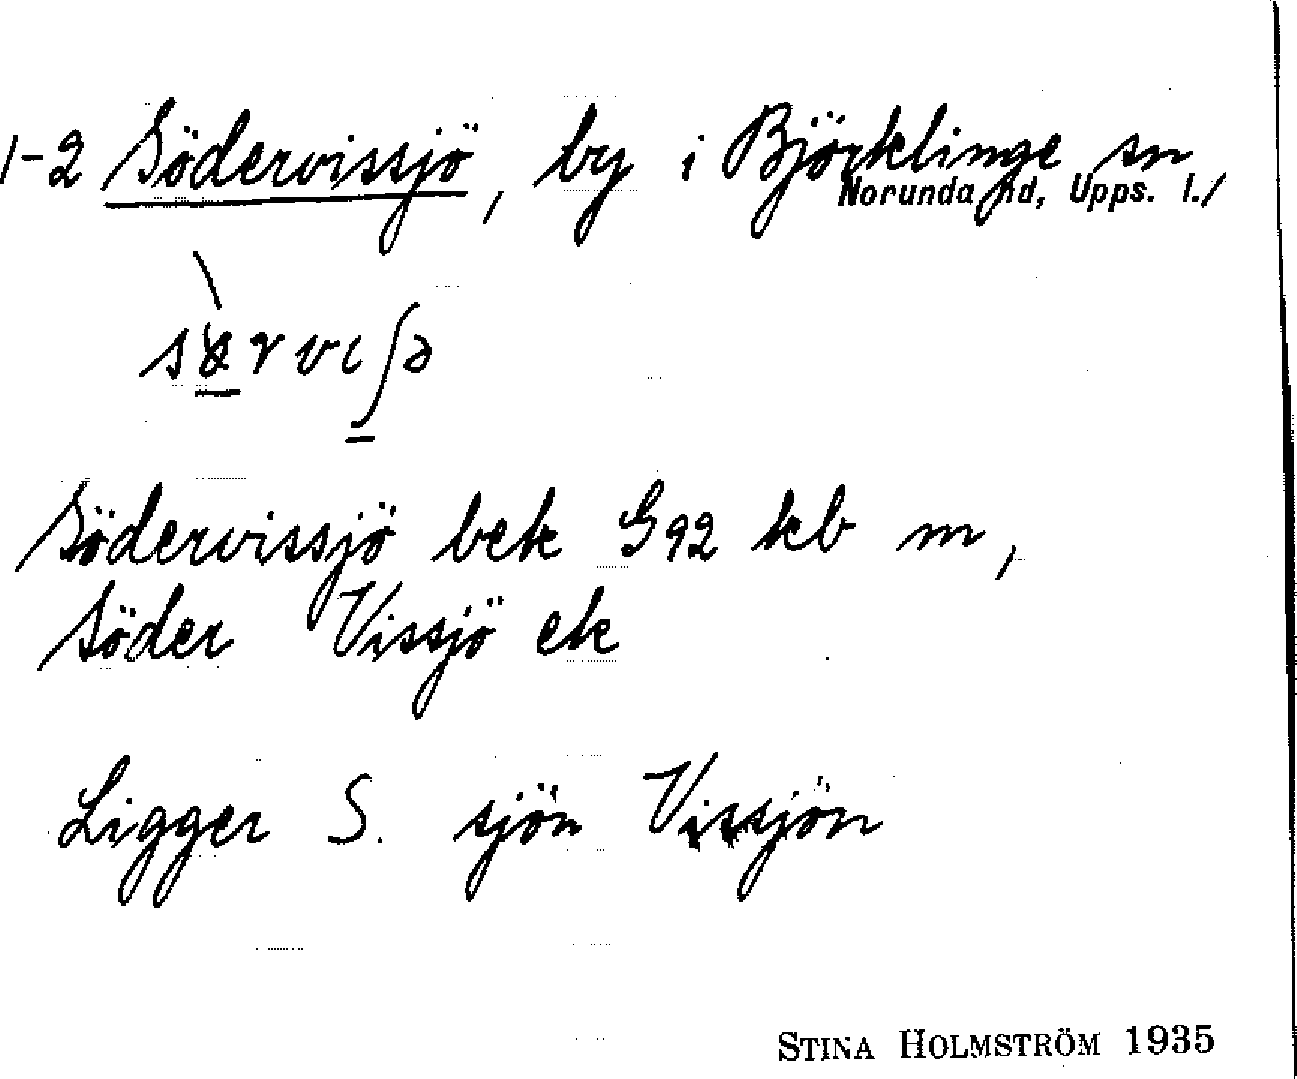 1-2 Södervissjö, by i Björklinge sn,
Norunda hd, Upps. l./
Södervissjö bek G92 kb m,
Söder Vissjö ek
Ligger S. sjön Vissjön
STINA HOLMSTRÖM 1935